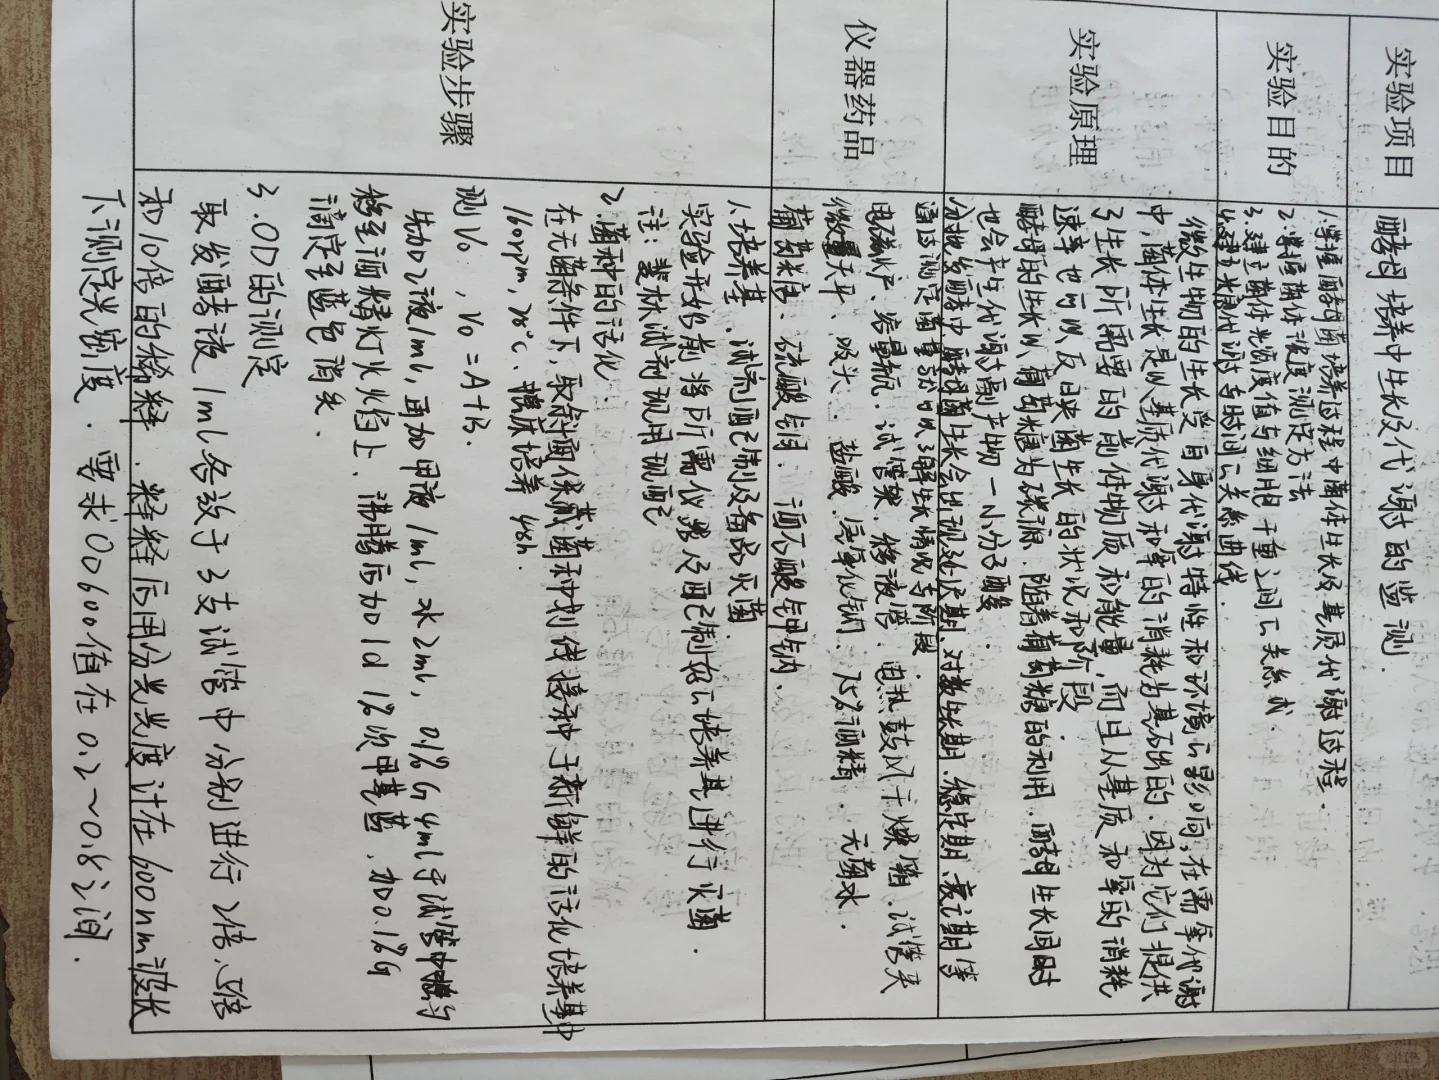 实验项目
酵母培养中生长及代谢的监测.
实验目的
1.掌握酵母菌培养过程中菌体生长及基质代谢过程.
2.掌握菌体浓度测定方法
3.建立菌体光密度值与细胞干重之间的关系式
4.建立光糖代谢与时间的关系曲线.
实验原理
微生物的生长受自身代谢特性和环境的影响,在需氧代谢
中,菌体生长是以基质代谢和氧的消耗为基础的.因为它们提供
了生长所需要的前体物质和能量,而且从基质和氧的消耗
速率也可以反映菌生长的状况和阶段.
酵母的生长以葡萄糖为碳源.随着葡萄糖的利用.酵母生长同时
也会产生代谢副产物一小分子酸.
分批发酵中酵母菌生长会出现延迟期、对数生长期、稳定期、衰亡期等
通过测定菌量就可以了解生长情况与阶段
仪器药品
电磁炉、容量瓶.试管架.移液管.电热鼓风干燥箱.试管夹
微量天平、吸头.盐酸.氢氧化钠、75%酒精.无菌水.
葡萄糖、硫酸铜.酒石酸钾钠.
实验步骤
1.培养基.试剂配制及备品灭菌.
实验开始前将所需仪器及配制好的培养基进行灭菌.
注:裴林试剂现用现配
2.菌种的活化.
在无菌条件下,取斜面保藏菌种划线接种于新鲜的活化培养基中
160rpm,28°C、摇床培养 48h.
测V₀,V₀=A+B.
先加乙液1ml,再加甲液1ml,水2ml,0.1%G 4ml于试管中
移至酒精灯火焰上、沸腾后加1d 1%次甲基蓝.加0.1%G
滴定至蓝色消失.
3.OD的测定
取发酵液1ml各放于3支试管中分别进行2倍、5倍
和10倍的稀释.稀释后用分光光度计在600nm波长
下测定光密度.要求OD600值在0.2~0.8之间.